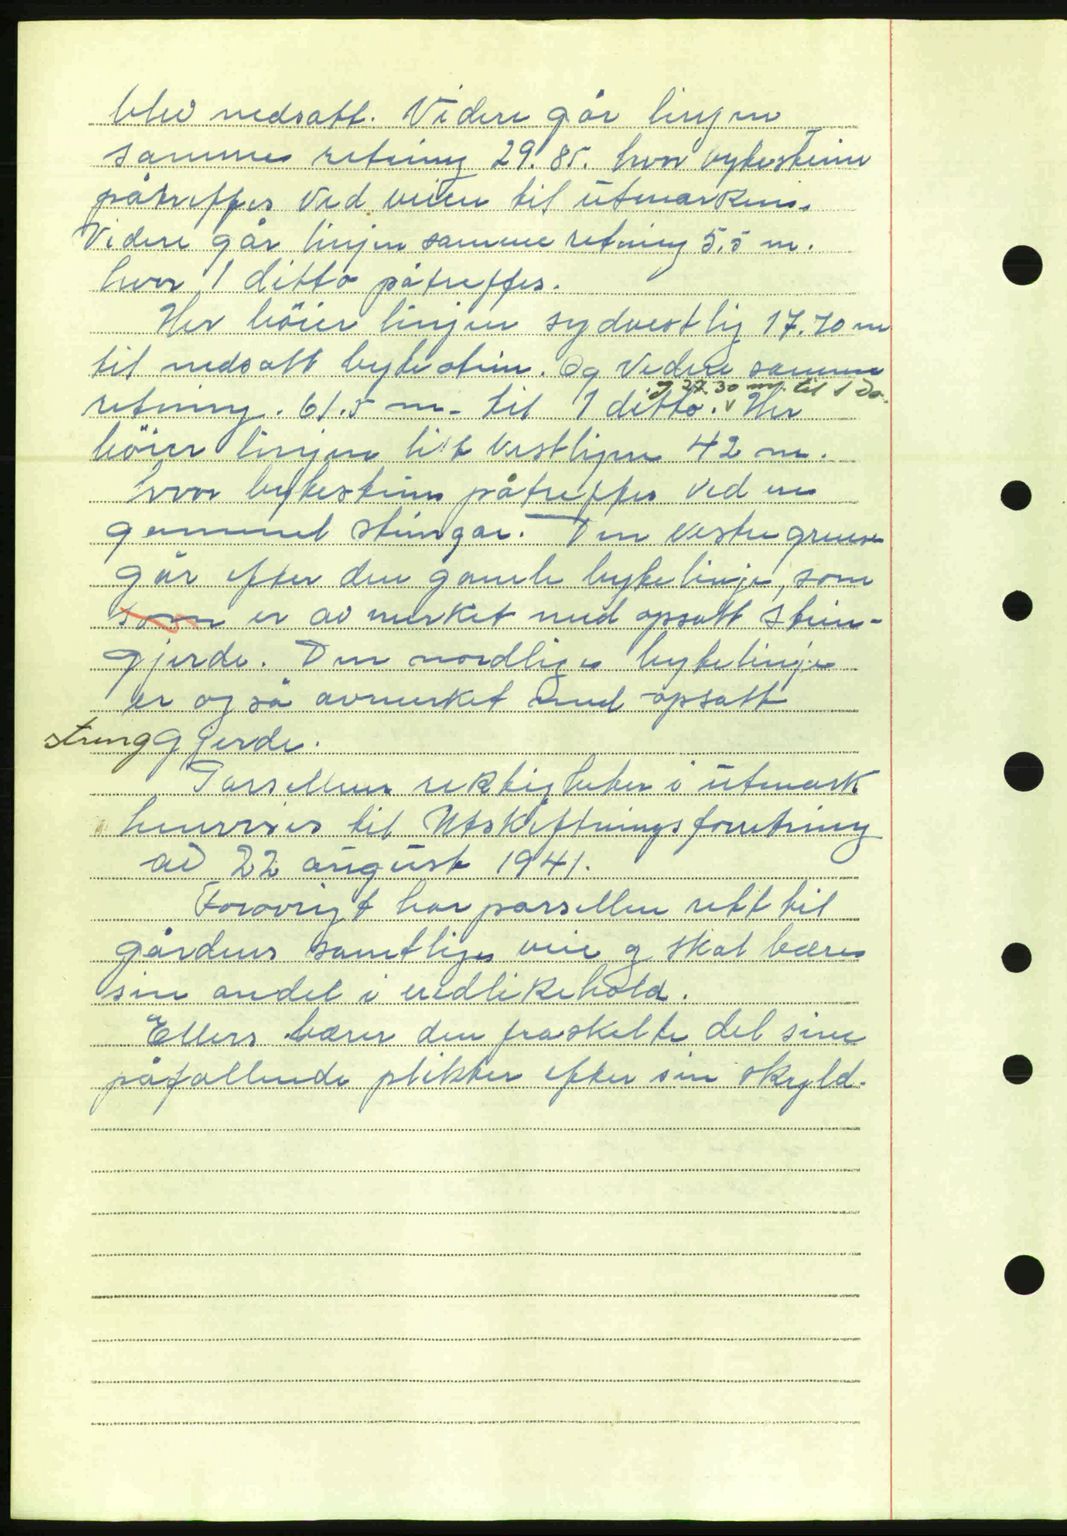 blev nedsatt. Videre går linjen
samme retning 29.85. hvor bytesteine
påtreffes ved veien til utmarken.
Videre går linjen samme retning 5.5 m.
hvor 1 ditto påtreffes.
Her böier linjen sydvestlig 17.70 m
til nedsatt bytestein. Og videre samme
og 27.30 m. til 1 Do.
retning. 61.5 m. til 1 ditto. Her
böier linjen lit vestligere 42 m.
hvor bytestein påtreffes ved en
gammel steingar. Den vestre grense
går efter den gamle bytelinje, som
som er avmerket med opsatt stein-
gjerde. Den nordlige bytelinje
er også avmerket med opsatt
strenggjerde.
Parsellens rektigheter i utmark
henvises til Utskiftningsforretning
av 22 august 1941.
Forøvrigt har parsellen rett til
gårdens samtlige veie og skal bære
sin andel i vedlikehold.
Ellers bærer den fraskilte del sine
påfallende plikter efter sin skyld.